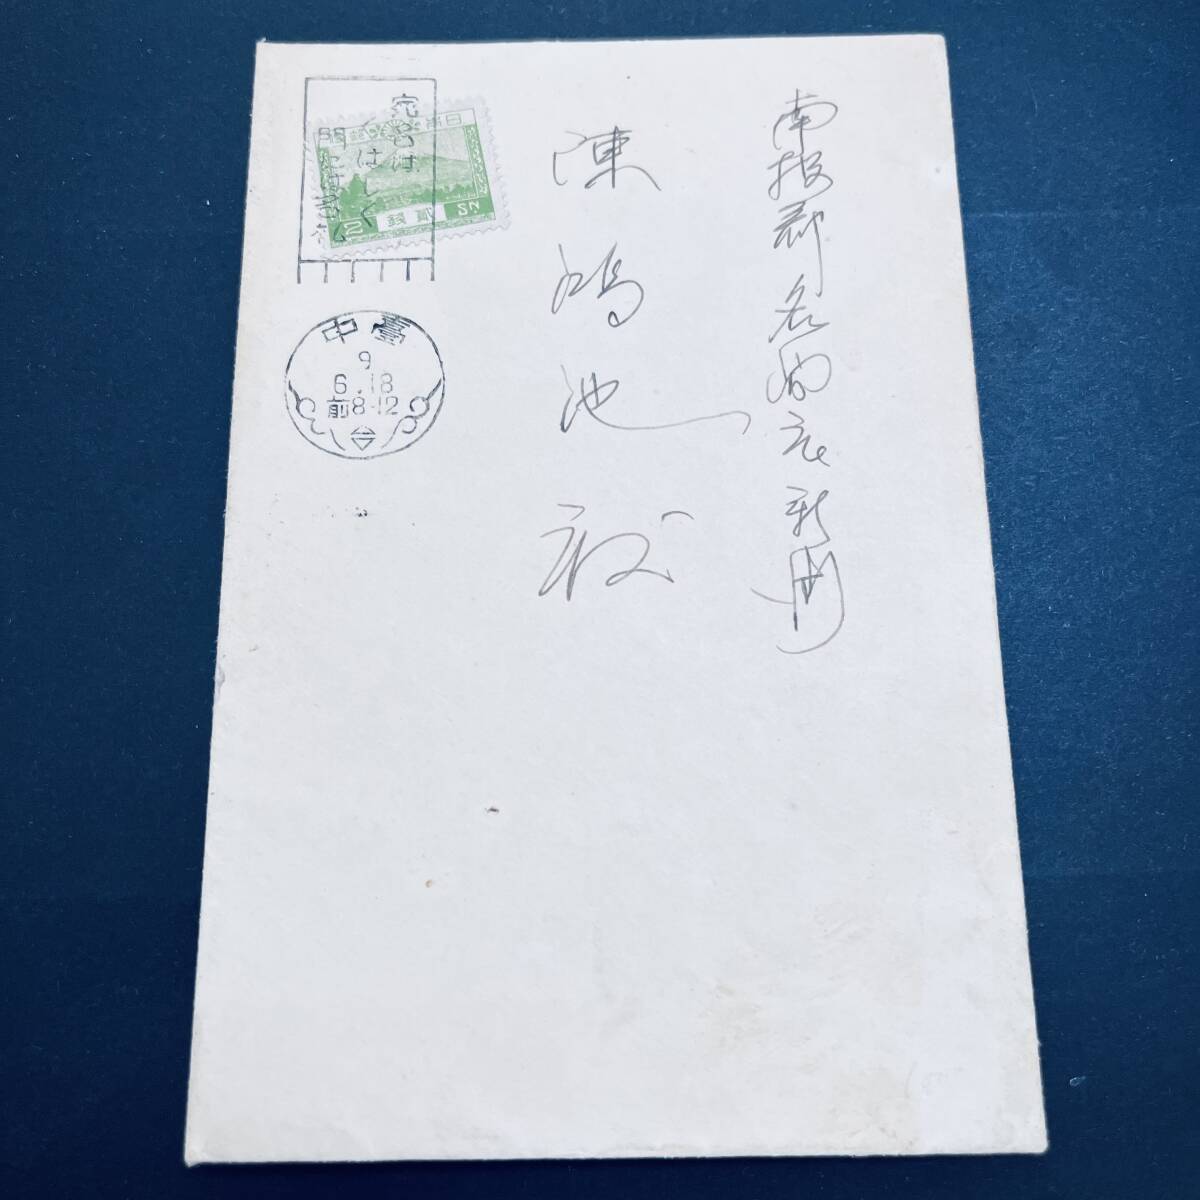 南投郡名間庄新街
陳鴻池殿
宛名は
くはしく
明瞭に
日本郵便
2 貳錢 2
臺中
9
6.18
前8-12